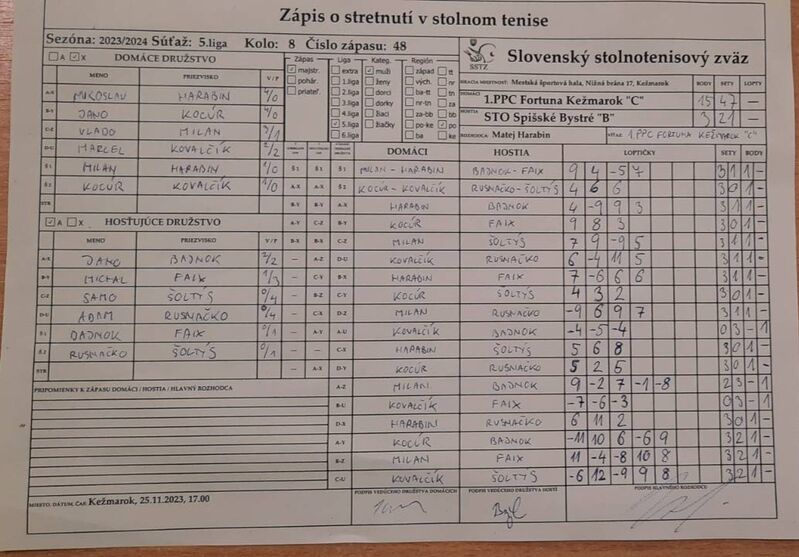 Zápis o stretnutí v stolnom tenise
Sezóna: 2023/2024 Súťaž: 5.liga Kolo: 8 Číslo zápasu: 48
A X DOMÁCE DRUŽSTVO
MENO PRIEZVISKO V/P
A-X MIROSLAV HARABIN 4/0
B-Y JANO KOCÚR 4/0
C-Z VLADO MILAN 3/1
D-U MARCEL KOVALČÍK 2/2
Š1 MILAN HARABIN 1/0
Š2 KOCÚR KOVALČÍK 1/0
STR
A X HOSŤUJÚCE DRUŽSTVO
MENO PRIEZVISKO V/P
A-X JANO BADNOK 2/2
B-Y MICHAL FAIX 1/3
C-Z SAMO ŠOLTÝS 0/4
D-U ADAM RUSNAČKO 0/4
Š1 BADNOK FAIX 0/1
Š2 RUSNAČKO ŠOLTÝS 0/1
STR
PRIPOMIENKY K ZÁPASU DOMÁCI / HOSTIA / HLAVNÝ ROZHODCA
MIESTO, DÁTUM, ČAS: Kežmarok, 25.11.2023, 17.00
Zápas Liga Kateg. Región
majstr. extra muži západ tt
pohár. 1.liga ženy vých. nr
priateľ. 2.liga dorci ba-tt tn
3.liga dorky nr-tn za
4.liga žiaci za-bb bb
5.liga žiačky po-ke po
6.liga ba ke
SSTZ
Slovenský stolnotenisový zväz
HRACIA MIESTNOSŤ: Mestská športová hala, Nižná brána 17, Kežmarok BODY SETY LOPTY
DOMÁCI
1.PPC Fortuna Kežmarok "C" 15 47 -
HOSTIA
STO Spišské Bystré "B" 3 21 -
ROZHODCA: Matej Harabin VÍŤAZ: 1.PPC FORTUNA KEŽMAROK "C"
DOMÁCI HOSTIA LOPTIČKY SETY BODY
Š1 Š1 Š1 MILAN - HARABIN BADNOK - FAIX 9 4 -5 7 3 1 1 -
A-X A-X Š2 KOCÚR - KOVALČÍK RUSNAČKO - ŠOLTÝS 4 6 6 3 0 1 -
B-Y B-Y A-X HARABIN BADNOK 4 -9 9 3 3 1 1 -
A-Y C-Z B-Y KOCÚR FAIX 9 8 3 3 0 1 -
B-X B-X C-Z MILAN ŠOLTÝS 7 9 -9 5 3 1 1 -
- A-Z D-U KOVALČÍK RUSNAČKO 6 -4 11 5 3 1 1 -
- C-Y B-X HARABIN FAIX 7 -6 6 6 3 1 1 -
- B-Z C-Y KOCÚR ŠOLTÝS 4 3 2 3 0 1 -
- C-X D-Z MILAN RUSNAČKO -9 6 9 7 3 1 1 -
- A-Y A-U KOVALČÍK BADNOK -4 -5 -4 0 3 - 1
- - C-X HARABIN ŠOLTÝS 5 6 8 3 0 1 -
- A-X D-Y KOCÚR RUSNAČKO 5 2 5 3 0 1 -
A-Z MILAN BADNOK 9 -2 7 -1 -8 2 3 - 1
B-U KOVALČÍK FAIX -7 -6 -3 0 3 - 1
D-X HARABIN RUSNAČKO 6 11 2 3 0 1 -
A-Y KOCÚR BADNOK -11 10 6 -6 9 3 2 1 -
B-Z MILAN FAIX 11 -4 -8 10 8 3 2 1 -
C-U KOVALČÍK ŠOLTÝS -6 12 -9 9 8 3 2 1 -
PODPIS VEDÚCEHO DRUŽSTVA DOMÁCICH PODPIS VEDÚCEHO DRUŽSTVA HOSTÍ PODPIS HLAVNÉHO ROZHODCU